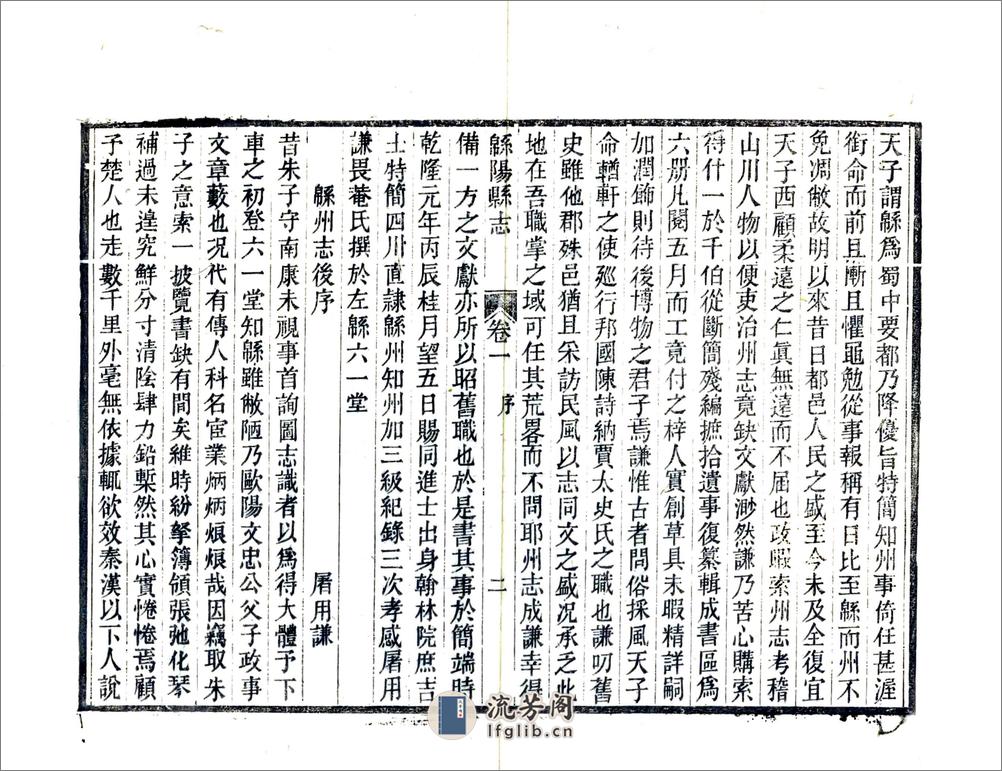 天子謂緜爲蜀中要都乃降優旨特簡知州事倚任甚渥
銜命而前且慚且懼黽勉從事報稱有日比至緜而州不
免凋敝故明以來昔日都邑人民之盛至今未及全復宜
天子西顧柔遠之仁眞無遠而不届也政暇索州志考稽
山川人物以便吏治州志竟缺文獻渺然謙乃苦心購索
得什一於千伯從斷簡殘編摭拾遺事復纂輯成書區爲
六册凡閱五月而工竟付之梓人實創草具未暇精詳嗣
加潤飾則待後博物之君子焉謙惟古者問俗採風天子
命輶軒之使廵行邦國陳詩納賈太史氏之職也謙叨舊
史雖他郡殊邑猶且采訪民風以志同文之盛况承乏此
地在吾職掌之域可任其荒畧而不問耶州志成謙幸得
緜陽縣志 卷一 序 二
備一方之文獻亦所以昭舊職也於是書其事於簡端時
乾隆元年丙辰桂月望五日賜同進士出身翰林院庶吉
士特簡四川直隷緜州知州加三級紀錄三次孝感屠用
謙畏菴氏撰於左緜六一堂
緜州志後序 屠用謙
昔朱子守南康未視事首詢圖志識者以爲得大體予下
車之初登六一堂知緜雖敝陋乃歐陽文忠公父子政事
文章藪也况代有傳人科名宦業炳炳烺烺哉因竊取朱
子之意索一披覽書缺有間矣維時紛拏簿領張弛化琴
補過未遑究鮮分寸清陰肆力鉛槧然其心實惓惓焉顧
予楚人也走數千里外毫無依據輒欲效秦漢以下人說
流芳阁
lfglib.cn